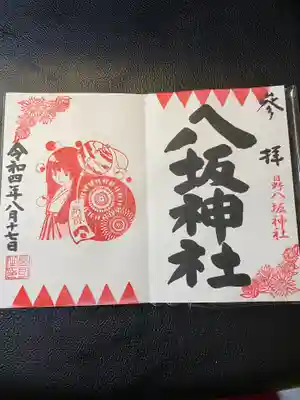 参拝
八坂神社
日野八坂神社
令和四年八月十七日